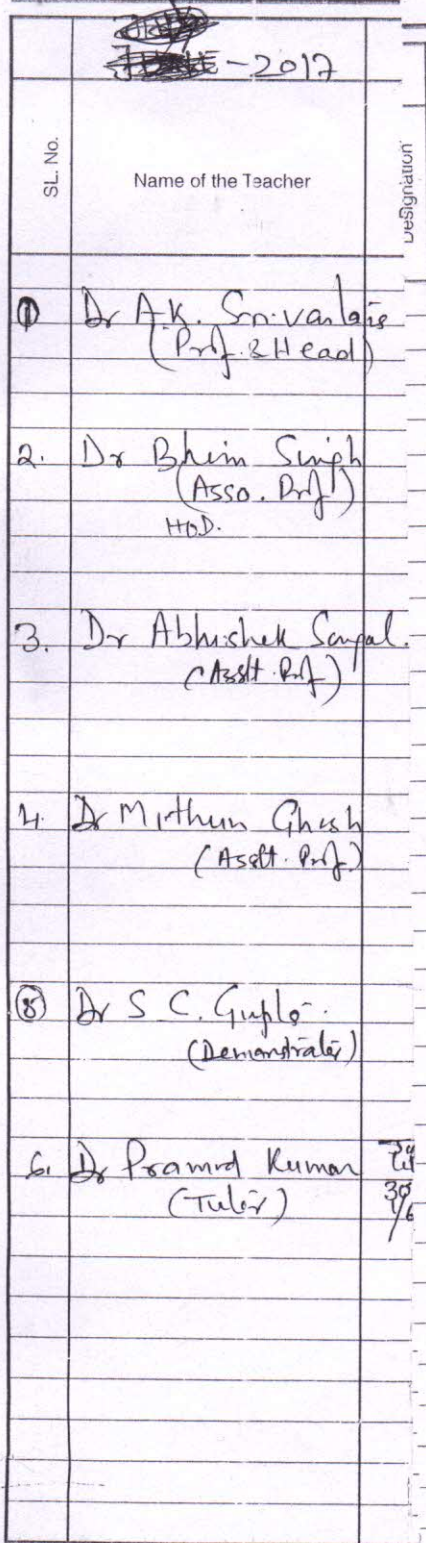 -2017
SL. No.
Name of the Teacher
Designation
1 Dr A.K. Srivastava
(Prof. & Head)
2. Dr Bhim Singh
(Asso. Prof.)
HOD.
3. Dr Abhishek
(Asstt. Prof)
4. Dr Mithun Ghosh
(Asstt. Prof.)
5 Dr S C. Gupta.
(Demonstrator)
6. Dr Pramod Kumar
(Tutor)
30